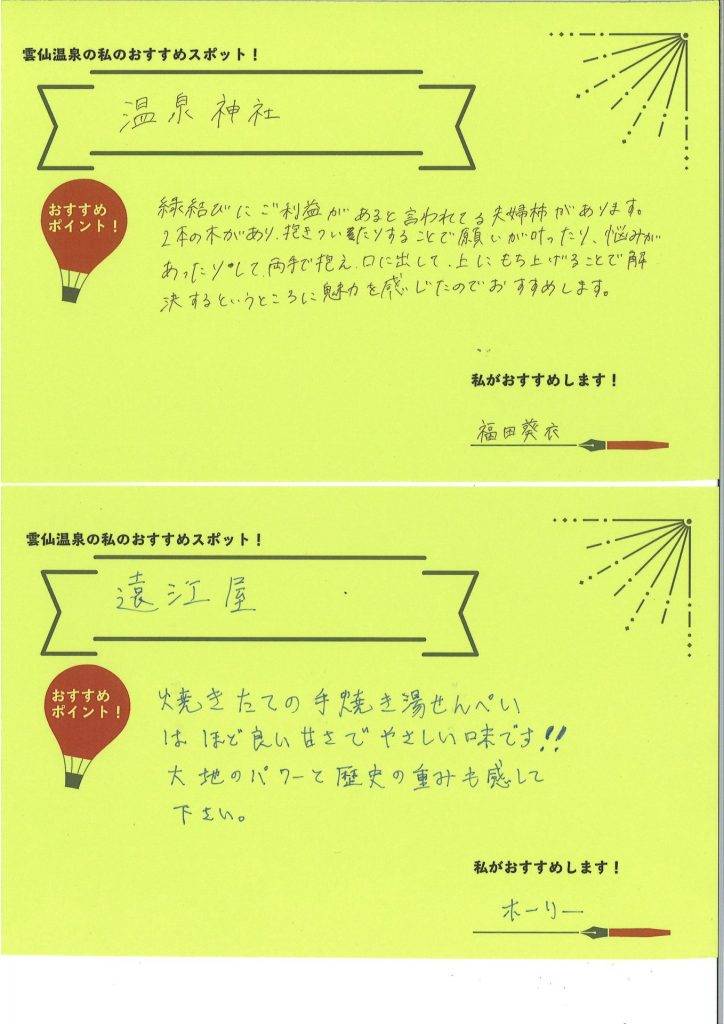 雲仙温泉の私のおすすめスポット！
温泉神社
おすすめ
ポイント！
縁結びにご利益があると言われてる夫婦柿があります。
2本の木があり、抱きついたりすることで願いが叶ったり、悩みが
あったりして、両手で抱え、口に出して、上にもち上げることで解
決するというところに魅力を感じたのでおすすめします。
私がおすすめします！
福田葵衣
雲仙温泉の私のおすすめスポット！
遠江屋
おすすめ
ポイント！
焼きたての手焼き湯せんぺい
はほど良い甘さでやさしい味です!!
大地のパワーと歴史の重みも感して
下さい。
私がおすすめします！
ホーリー